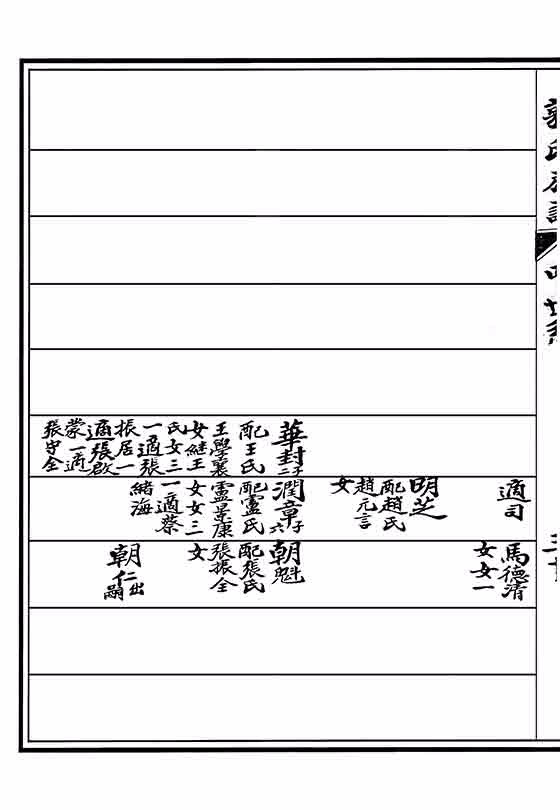 華封子二
配王氏
王學襄
女繼王
氏女三
一適張
振居一
適張啟
蒙一適
張守全
適司
明芝
配趙氏
趙元言
女
潤章子六
配盧氏
盧景康
女女三
一適蔡
緒海
馬德清
女女一
朝魁
配張氏
張振全
女
朝仁出嗣